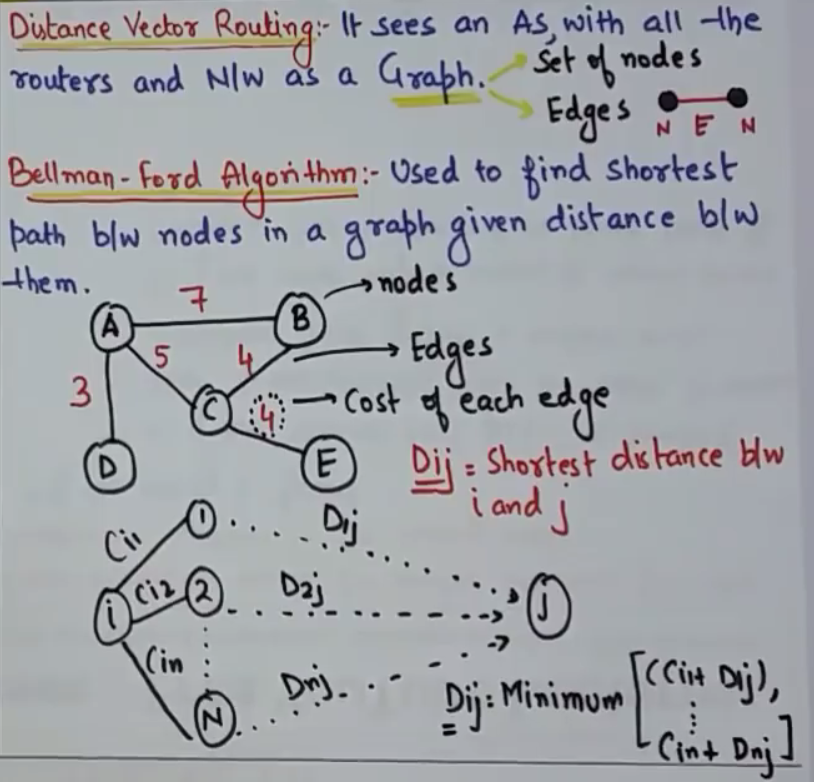 Distance Vector Routing:- It sees an AS, with all the
routers and N/W as a Graph.
Set of nodes
Edges
N E N
Bellman-Ford Algorithm:- Used to find shortest
path b/w nodes in a graph given distance b/w
them.
nodes
7
A
B
5
4
Edges
3
C
4
Cost of each edge
D
E
Dij = Shortest distance b/w
i and j
Ci1
1
D1j
i
Ci2
2
D2j
j
Cin
N
Dnj
Dij = Minimum [(Ci1+ D1j),
Cin+ Dnj]